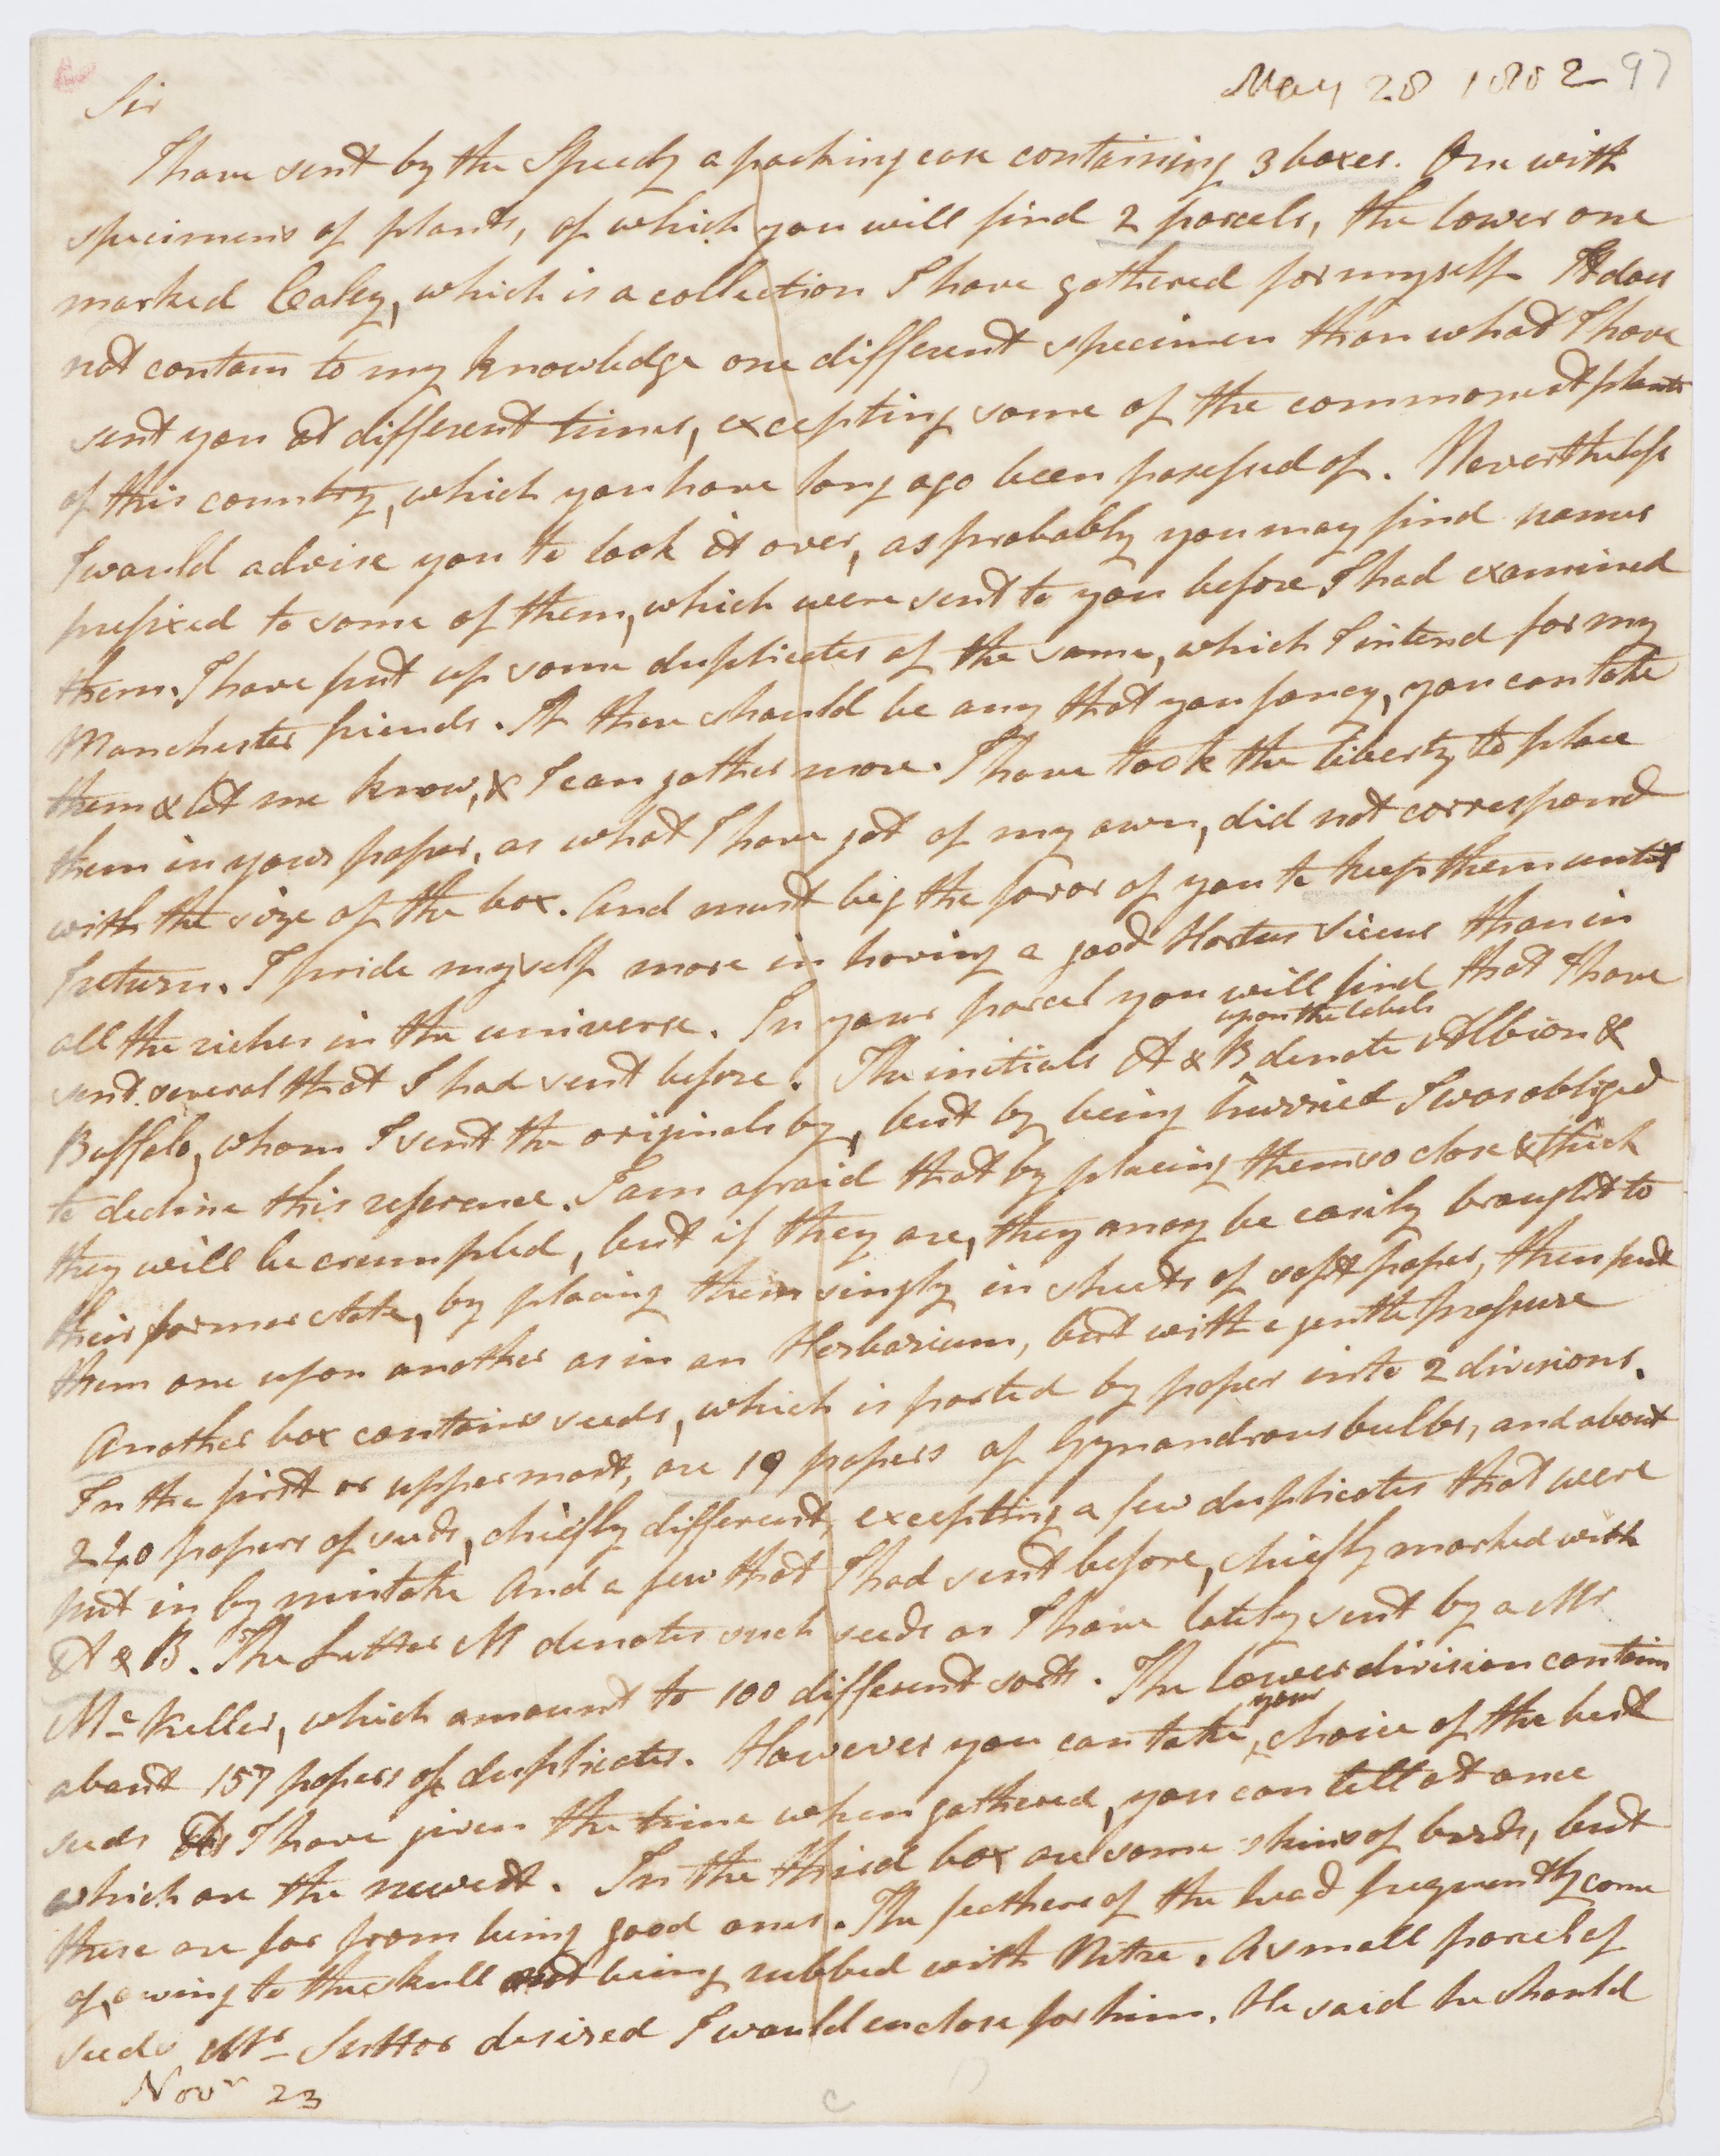 May 28 1802 97
Sir
I have sent by the Speedy a packing case containing 3 boxes. One with
specimens of plants, of which you will find 2 parcels, the lower one
marked Caley, which is a collection I have gathered for myself. It does
not contain to my knowledge one different specimen than what I have
sent you at different times, excepting some of the commonest plants
of this country, which you have long ago been possessed of. Nevertheless
I would advise you to look it over, as probably you may find names
prefixed to some of them, which were sent to you before I had examined
them. I have put up some duplicates of the same, which I intend for my
Manchester friends. If there should be any that you fancy, you can take
them & let me know, & I can gather more. I have took the liberty to place
them in your paper, as what I have got of my own, did not correspond
with the size of the box. And must beg the favor of you to keep them until
I return. I pride myself more in having a good Hortus Siccus than in
all the riches in the universe. In your parcel you will find that I have
upon the labels
sent several that I had sent before. The initials A & B denote Albion &
Buffalo, whom I sent the originals by, but by being hurried I was obliged
to decline this reference. I am afraid that by placing them so close & thick
they will be crumpled, but if they are, they may be easily brought to
their former state, by placing them singly in sheets of soft paper, then put
them one upon another as in an Herbarium, but with a gentle pressure
Another box contains seeds, which is parted by paper into 2 divisions.
In the first or uppermost, are 19 papers of Gynandrous bulbs, and about
240 papers of seeds, chiefly different, excepting a few duplicates that were
put in by mistake And a few that I had sent before, chiefly marked with
A & B. The Letter M denotes such seeds as I have lately sent by a Mr
Mc Keller, which amount to 100 different sorts. The lower division contains
your
about 157 papers of duplicates. However you can take choice of the best
seeds As I have given the time when gathered, you can tell at once
which are the newest. In the third box are some skins of birds, but
these are far from being good ones. The feathers of the head frequently come
of, owing to the skull not being rubbed with Nitre. A small parcel of
seeds Mr Suttor desired I would enclose for him. He said he should
Novr 23